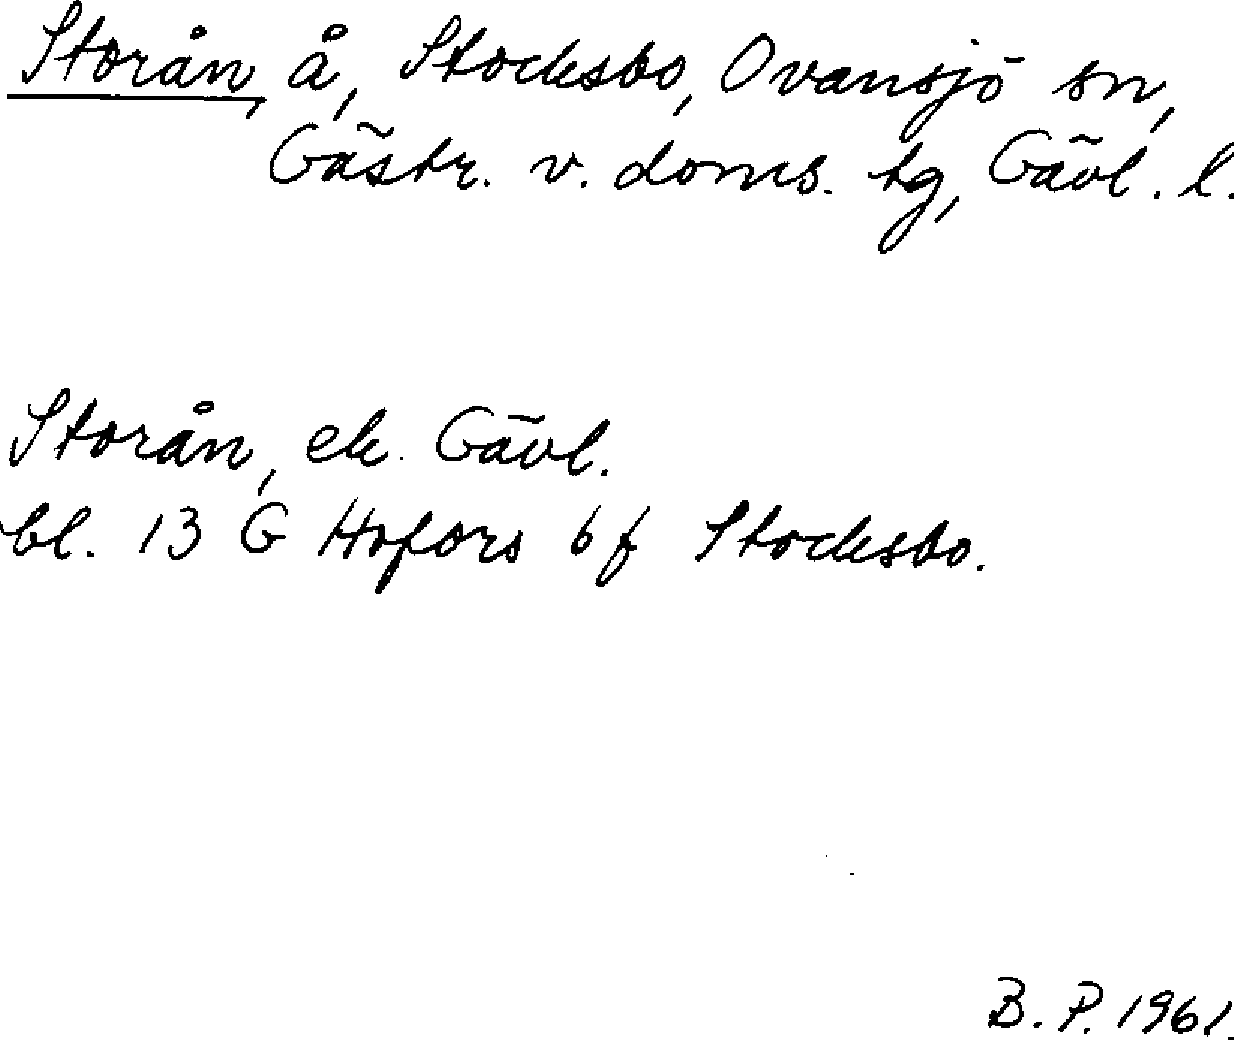 Storån, å, Stocksbo, Ovansjö sn,
Gästr. v. doms. tg, Gävl. l.
Storån, ek. Gävl.
bl. 13 G Hofors 6 f Stocksbo.
B. P. 1961.